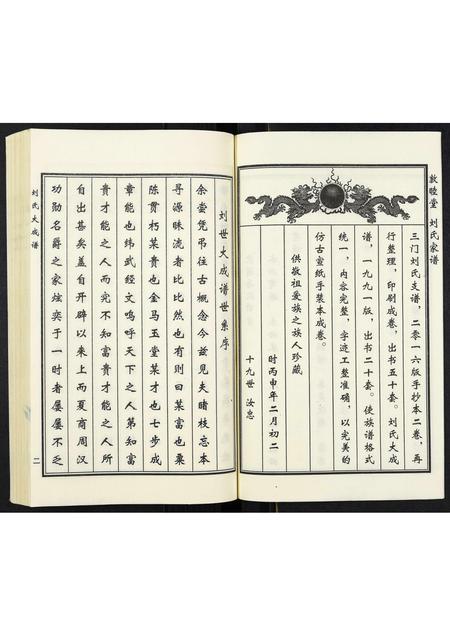 敦睦堂 刘氏家谱
三门刘氏支谱，二零一六版手抄本二卷，再
行整理，印刷成卷，出书五十套。刘氏大成
谱，一九九一版，出书二十套。使族谱格式
统一，内容完整，字迹工整准确，以完美的
仿古宣纸手装本成卷。
供敬祖爱族之族人珍藏
时丙申年二月初二
十九世 汝忠
刘世大成谱世集序
余尝凭吊往古概念今兹见夫睹枝忘本
寻源昧流者比比然也有则曰某富也粟
陈贯朽某贵也金马玉堂某才也七步成
章能也纬武经文呜呼天下之人第知富
贵才能之人而完不知富贵才能之人所
自出甚矣盖自开辟以来上而夏商周汉
功勋名爵之家炫奕于一时者屡屡不乏
刘氏大成谱
二